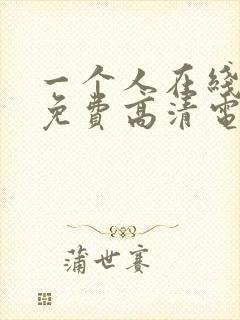 一个人在线
免费高清电
蒲世赛